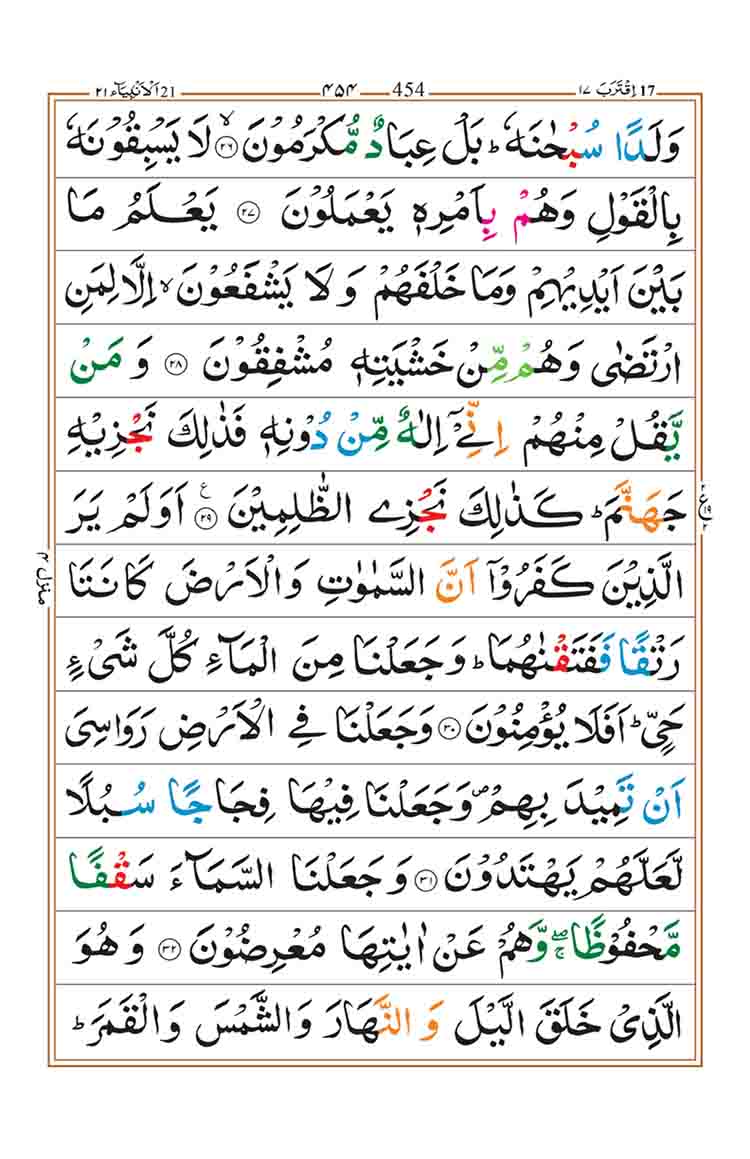 اِقْتَرَبَ ١٧ 17 454 ۴۵۴ اَلْاَنْۢبِيَآء ٢١ 21
وَلَدًا سُبْحٰنَهٗ ؕ بَلْ عِبَادٌ مُّكْرَمُوْنَ ۙ‏ ﴿۲۶﴾ لَا يَسْبِقُوْنَهٗ
بِالْقَوْلِ وَهُمْ بِاَمْرِهٖ يَعْمَلُوْنَ ﴿۲۷﴾ يَعْلَمُ مَا
بَيْنَ اَيْدِيْهِمْ وَمَا خَلْفَهُمْ وَلَا يَشْفَعُوْنَ ۙ اِلَّا لِمَنِ
ارْتَضٰى وَهُمْ مِّنْ خَشْيَتِهٖ مُشْفِقُوْنَ ﴿۲۸﴾ وَمَنْ
يَّقُلْ مِنْهُمْ اِنِّىْۤ اِلٰهٌ مِّنْ دُوْنِهٖ فَذٰلِكَ نَجْزِيْهِ
جَهَنَّمَ ؕ كَذٰلِكَ نَجْزِى الظّٰلِمِيْنَ ﴿۲۹﴾ ع اَوَلَمْ يَرَ
الَّذِيْنَ كَفَرُوْۤا اَنَّ السَّمٰوٰتِ وَالْاَرْضَ كَانَتَا
رَتْقًا فَفَتَقْنٰهُمَا ؕ وَجَعَلْنَا مِنَ الْمَآءِ كُلَّ شَىْءٍ
حَىٍّ ؕ اَفَلَا يُؤْمِنُوْنَ ﴿۳۰﴾ وَجَعَلْنَا فِى الْاَرْضِ رَوَاسِىَ
اَنْ تَمِيْدَ بِهِمْ ۪ وَجَعَلْنَا فِيْهَا فِجَاجًا سُبُلًا
لَّعَلَّهُمْ يَهْتَدُوْنَ ﴿۳۱﴾ وَجَعَلْنَا السَّمَآءَ سَقْفًا
مَّحْفُوْظًا ۖۚ وَّهُمْ عَنْ اٰيٰتِهَا مُعْرِضُوْنَ ﴿۳۲﴾ وَهُوَ
الَّذِىْ خَلَقَ الَّيْلَ وَالنَّهَارَ وَالشَّمْسَ وَالْقَمَرَ ؕ
منزل ۴